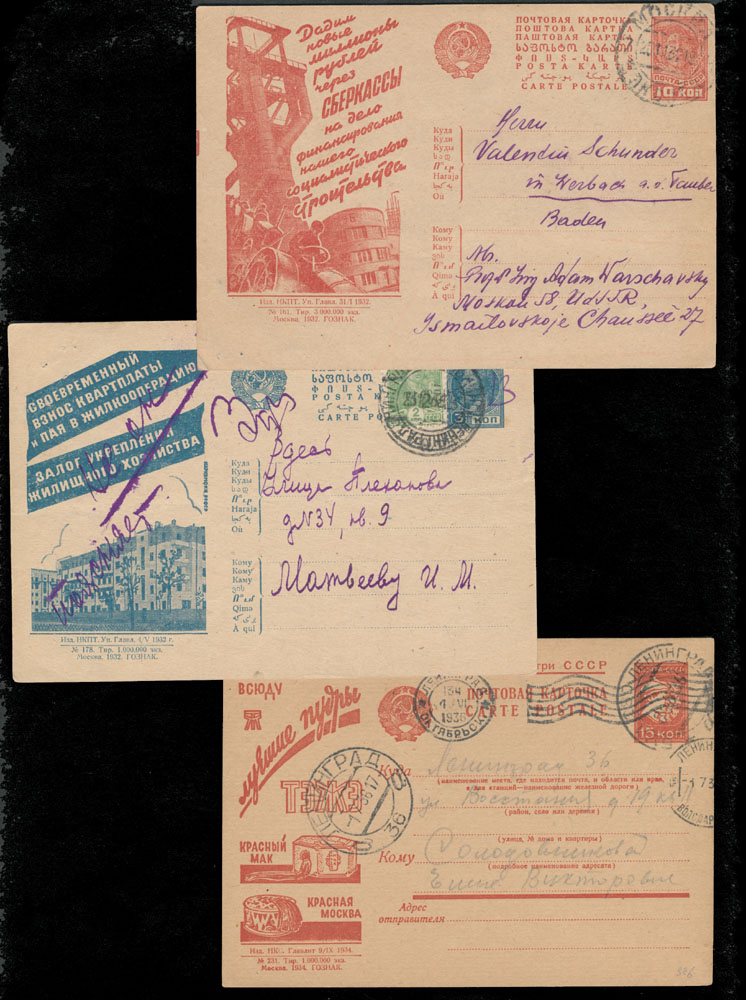 Дадим
новые
миллионы
рублей
через
СБЕРКАССЫ
на дело
финансирования
нашего
социалистического
строительства
Изд. НКПТ. Уп. Главл. 31/I 1932.
№ 161. Тир. 3.000.000 экз.
Москва. 1932. ГОЗНАК.
ПОЧТОВАЯ КАРТОЧКА
ПОШТОВА КАРТКА
ПАШТОВАЯ КАРТКА
POSTA KART
CARTE POSTALE
МОСКВА
ПОЧТА
10 КОП
Куда
Куди
Куды
Haraja
Où
Кому
Кому
Каму
Qimə
À qui
Herrn
Valentin Schunder
in Werbach a.d. Tauber
Baden
Abs.
Adam Warschavsky
Moskau 58, UdSSR,
Ismailovskoje Chaussée 27
СВОЕВРЕМЕННЫЙ
ВЗНОС КВАРТПЛАТЫ
И ПАЯ В ЖИЛКООПЕРАЦИЮ
ЗАЛОГ УКРЕПЛЕНИЯ
ЖИЛИЩНОГО ХОЗЯЙСТВА
Изд. НКПТ. Уп. Главл. 4/V 1932 г.
№ 178. Тир. 1.000.000 экз.
Москва. 1932. ГОЗНАК.
POSTA KA
CARTE POSTAL
2
КОП
ЛЕНИНГРАД
Куда
Куди
Куды
Haraja
Où
Кому
Кому
Каму
Qimə
À qui
Здесь
Улица Плеханова
д №34, кв. 9
Матвееву И. М.
ВСЮДУ
лучшие пудры
ТЭЖЭ
КРАСНЫЙ
МАК
КРАСНАЯ
МОСКВА
№ 331. Тир. 1.000.000 экз.
Москва. 1934. ГОЗНАК.
три СССР
ПОЧТОВАЯ КАРТОЧКА
CARTE POSTALE
15 КОП
ЛЕНИНГРАД
1936
ОКТЯБРЬСК
ЛЕНИНГРАД
36
ЛЕНИНГРАД
ЛЕНИН
Куда
Ленинград 36
(наименование места, где находится почта, и области или края,
а для станций—наименование железной дороги)
ул Восстания д 19 кв
(район, село или деревня)
(улица, № дома и квартиры)
Кому
Солодовникова
(подробное наименование адресата)
Елене Викторовне
Адрес
отправителя